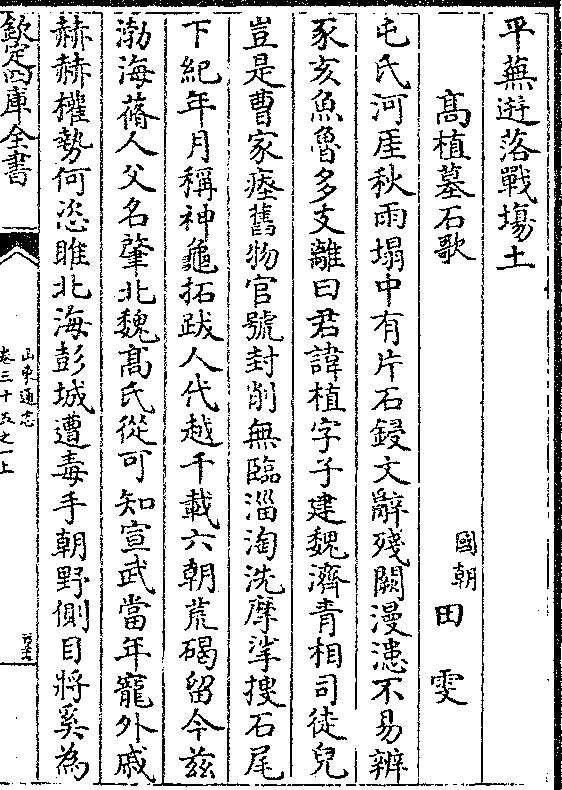 平蕪遊落戰塲土
髙植墓石歌
國朝田雯
屯氏河厓秋雨塌中有片石鋟文辭殘闕漫漶不易辨
豕亥魚魯多支離曰君諱植字子建魏濟青相司徒兒
豈是曹家瘞舊物官號封削無臨淄淘洗摩挲搜石尾
下紀年月稱神龜拓跋人代越千載六朝荒碣留今兹
渤海蓨人父名肇北魏髙氏從可知宣武當年寵外戚
赫赫權勢何恣睢北海彭城遭毒手朝野側目將奚為
欽定四庫全書
山東通志
卷三十五之一上